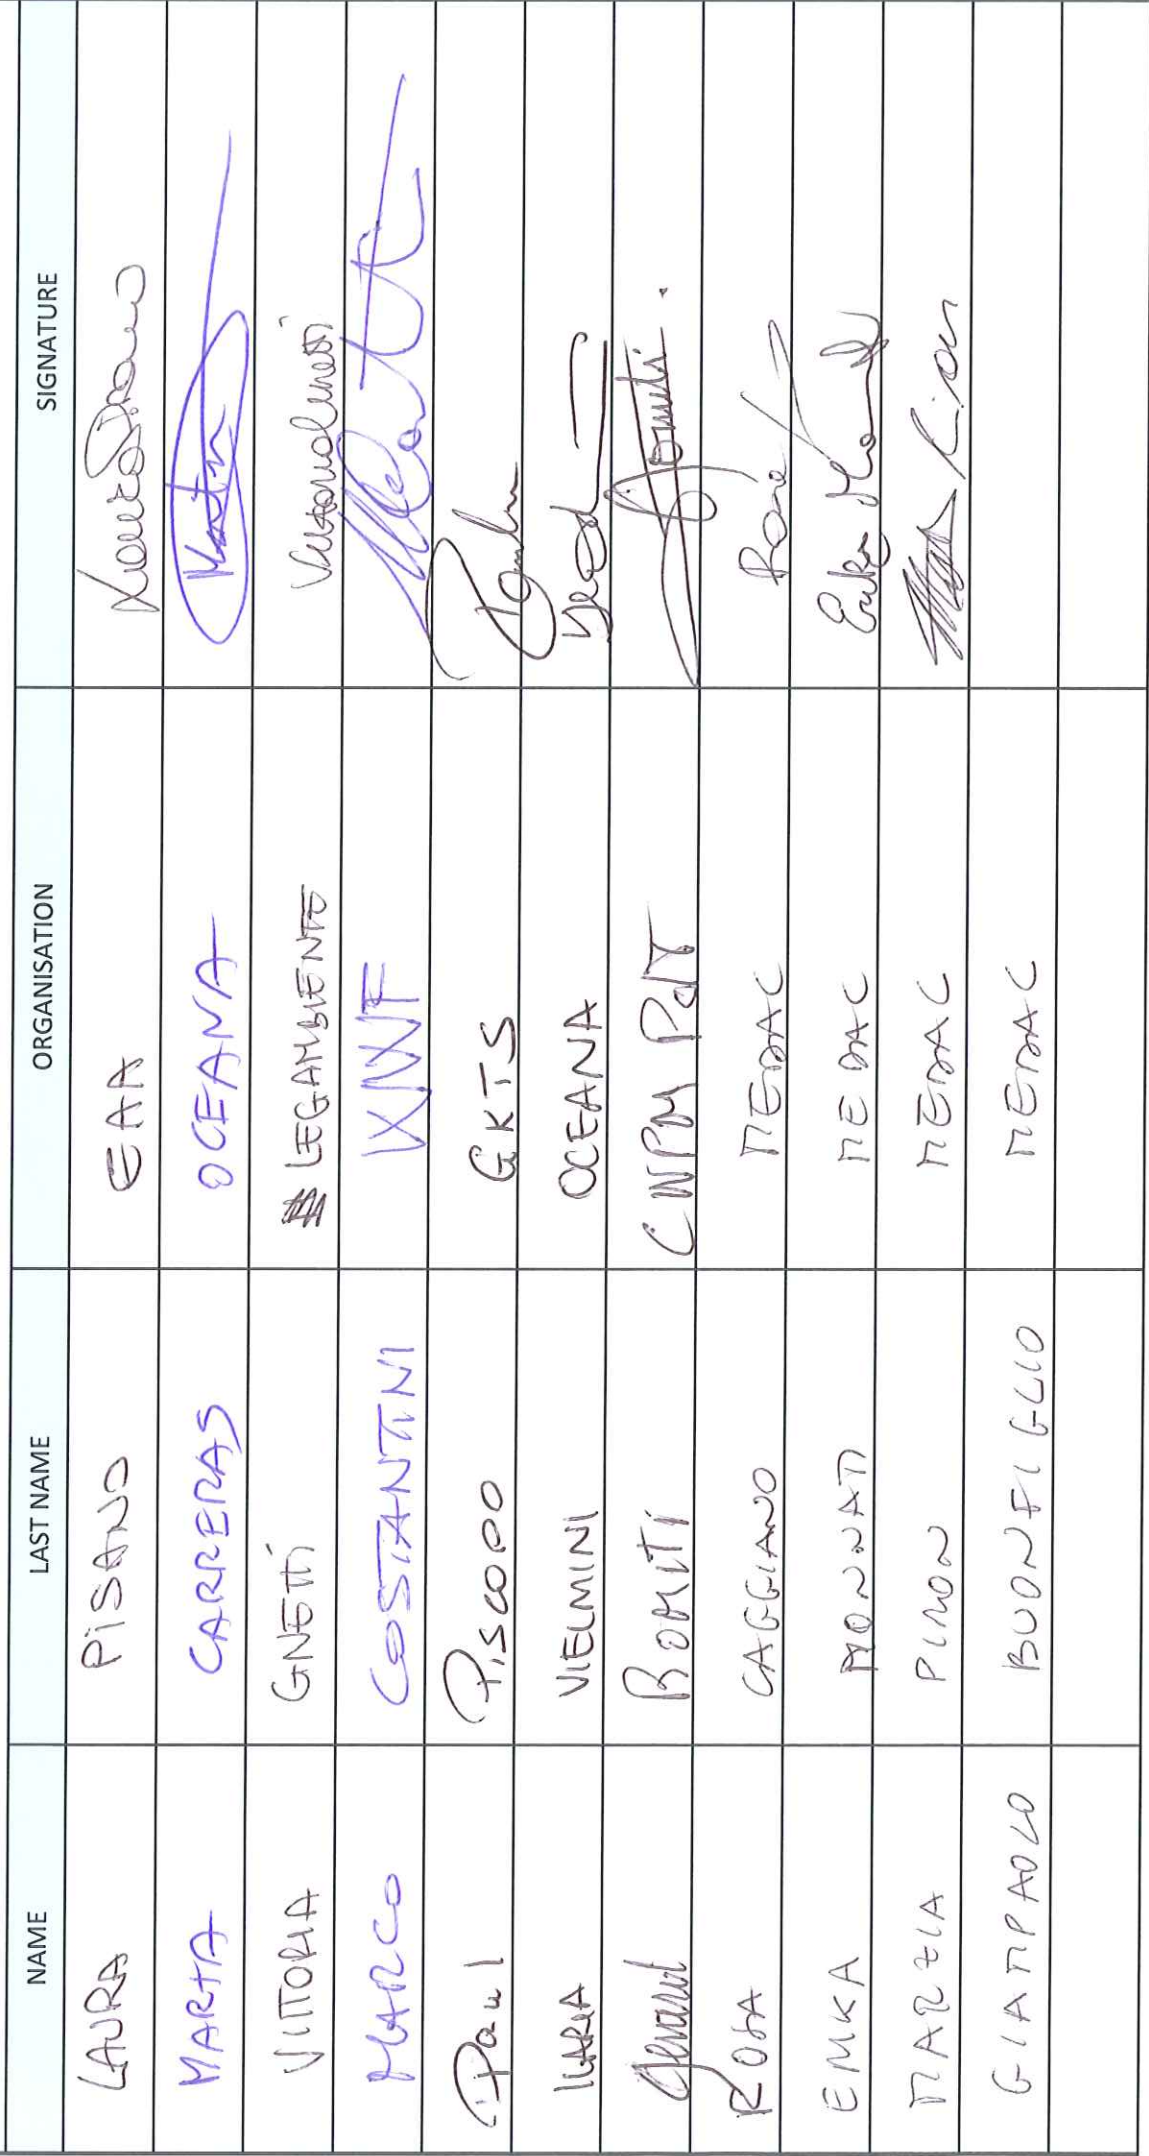 NAME LAST NAME ORGANISATION SIGNATURE
LAURA PISANO EAA
MARTA CARRERAS OCEANA
VITTORIA GNETTI LEGAMBIENTE
MARCO COSTANTINI WWF
Paul Piscopo GKTS
ILARIA VIELMINI OCEANA
Gerard ROMITI CNPM
ROSA CAGGIANO MEDAC
ERIKA MONNATI MEDAC
MARZIA PIRON MEDAC
GIAMPAOLO BUONFIGLIO MEDAC